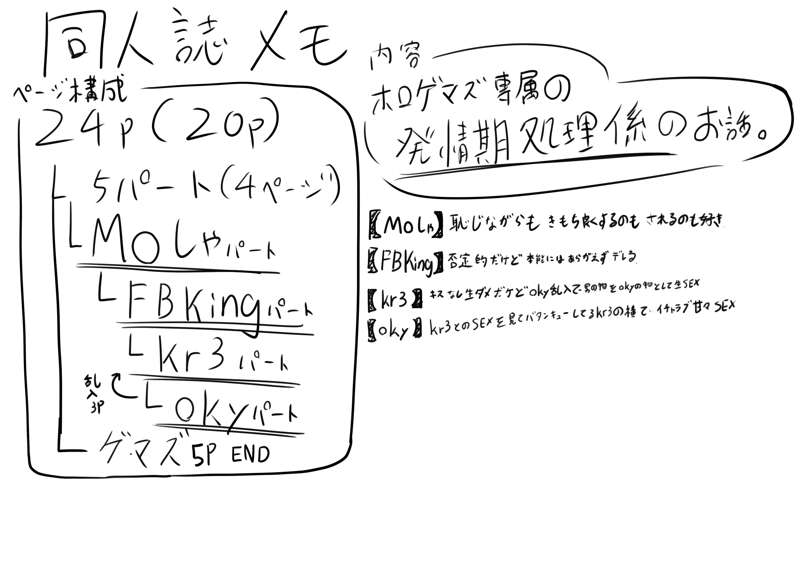 同人誌メモ
ページ構成
24p(20p)
5パート(4ページ)
MOしゃパート
FBKingパート
kr3パート
乱入3P
okyパート
ゲマズ5P END
内容
ホロゲマズ専属の
発情期処理係のお話。
【MOしゃ】恥じながらも きもち良くするのも されるのも好き
【FBKing】否定的だけど本能にはあらがえずデレる
【kr3】キスなし生ダメだけどoky乱入で君の物をokyの物として生SEX
【oky】kr3とのSEXを見てバタンキューしてるkr3の横で イチャラブ甘々SEX